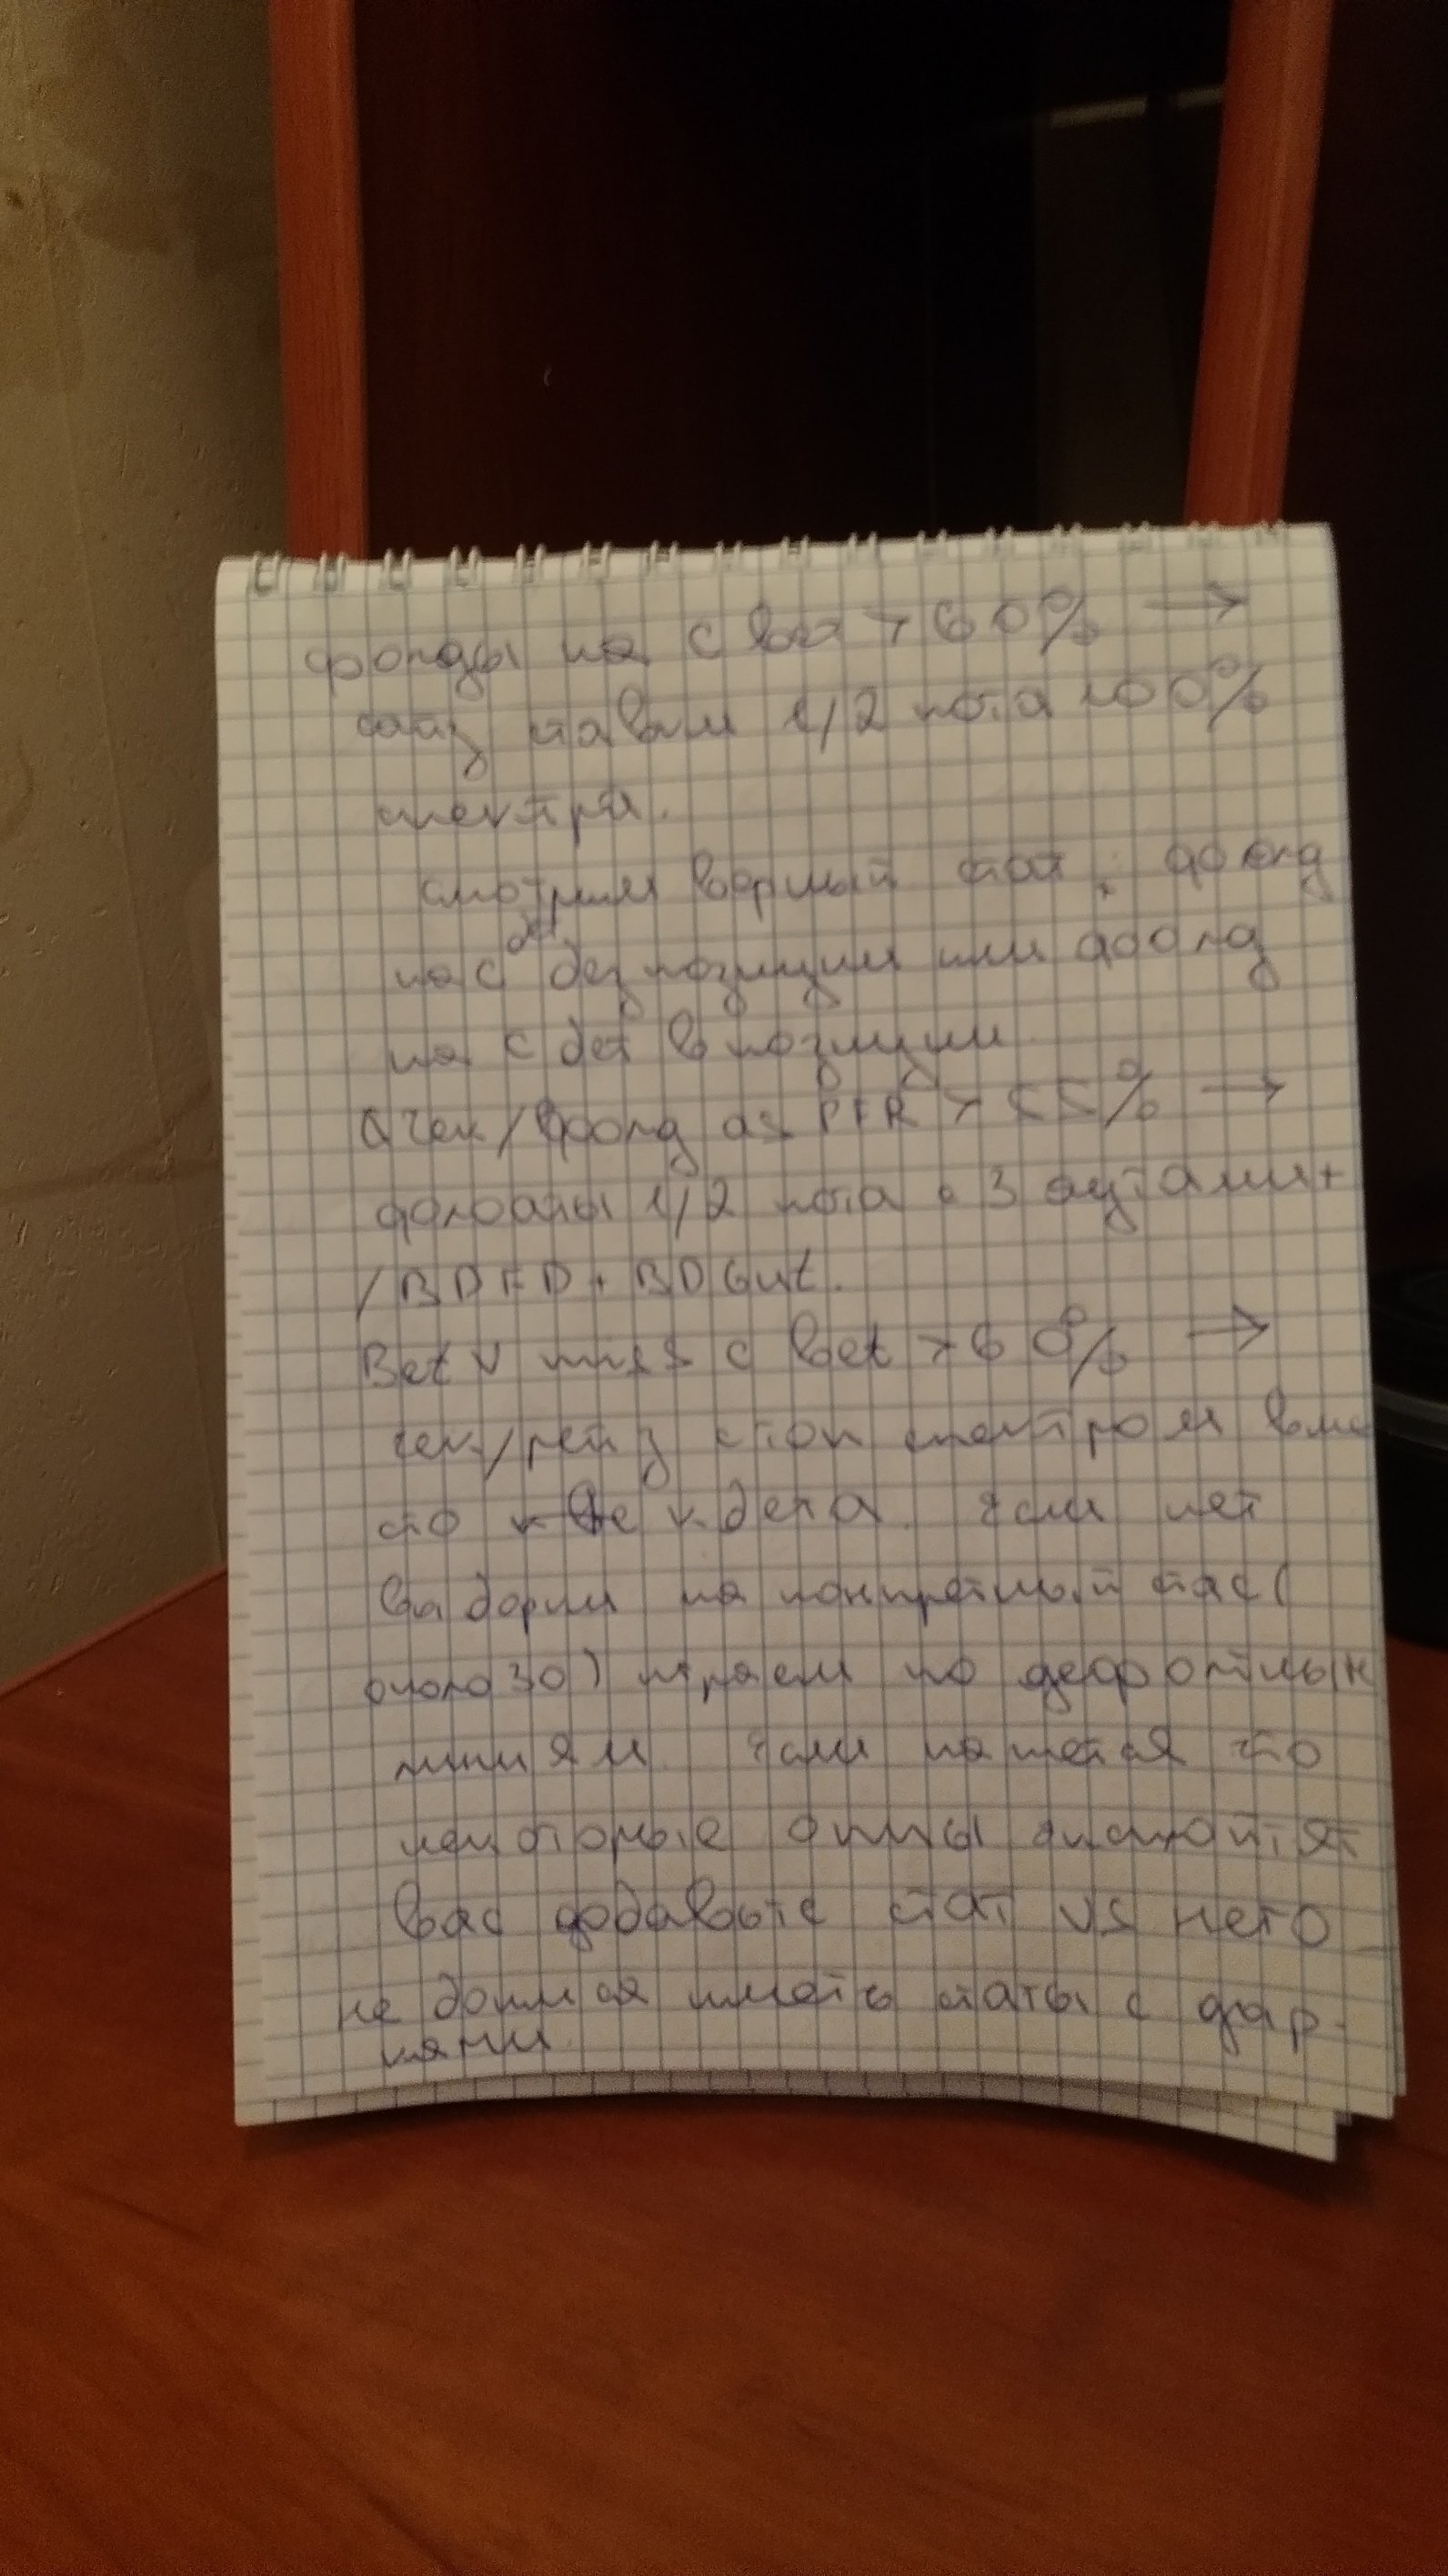 фолды на c bet > 60% →
сайз ставим 1/2 пота 100%
спектра.
смотрим верный стат, фолд
на c bet без позиции или фолд
на c бет в позиции
чек/фолд as PFR > 55% →
флоаты 1/2 пота с 3 аутами+
/BDFD + BDGut.
Bet V miss c bet > 60% →
чек/рейз стоп спектром вме
сто чек колла. Если нет
выборки на конкретный стат (
около 30) играем по дефолтным
линиям. Если кажется что
некоторые оппы эксплойтят
вас добавьте стат vs него
не бойтся иметь статы с